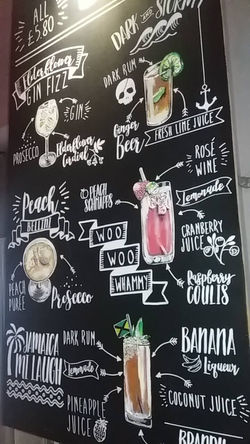 ALL
£5.80
Elderflower
GIN FIZZ
GIN
PROSECCO
Elderflower
Cordial
DARK AND STORMY
DARK RUM
Ginger
Beer
FRESH LIME JUICE
Peach
BELLINI
PEACH
PURÉE
Prosecco
ROSÉ
WINE
PEACH
SCHNAPPS
Lemonade
WOO
WOO
WHAMM
CRANBERRY
JUICE
Raspberry
COULIS
JAMAICA
ME LAUGH
DARK RUM
Lemonade
PINEAPPLE
JUICE
BANANA
Liqueur
COCONUT JUICE
BRANDY